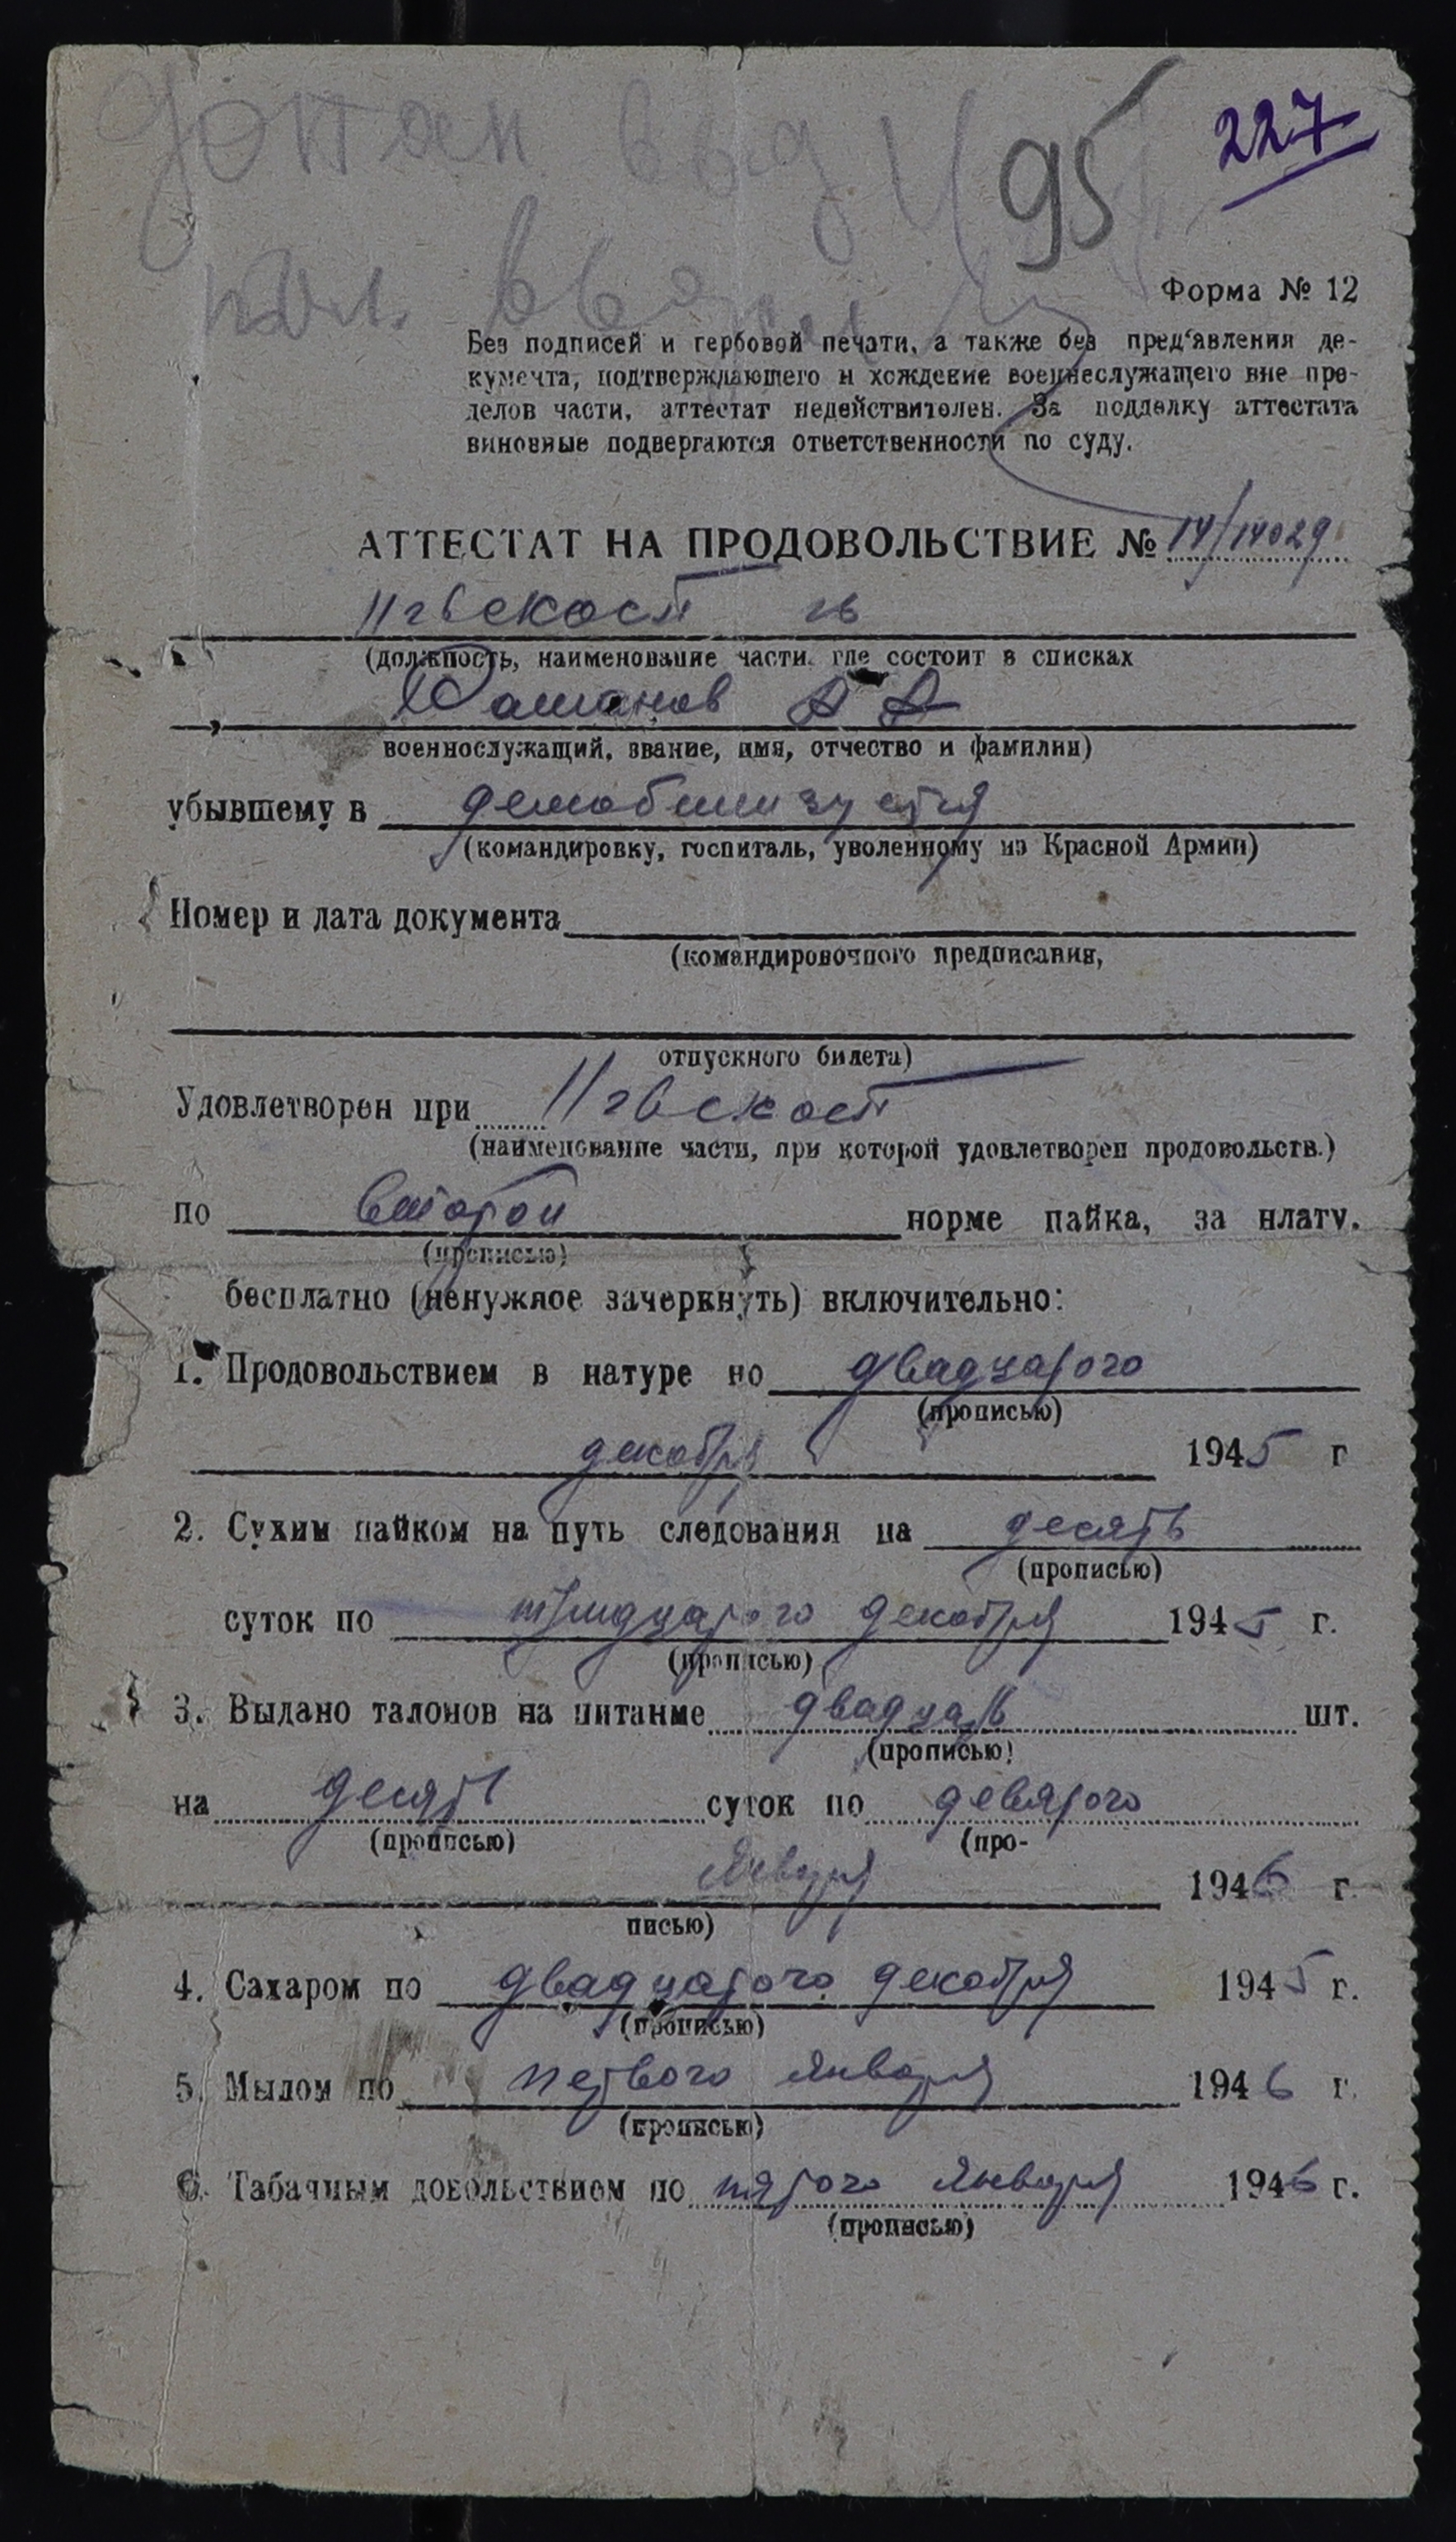 95
227
Форма № 12
Без подписей и гербовой печати, а также без пред‘явления де-
кумечта, подтверждающего н хождение военнеслужащего вне пре-
делов части, аттестат недействителен. За подделку аттестата
виновные подвергаются ответственности по суду.
АТТЕСТАТ НА ПРОДОВОЛЬСТВИЕ № 14/14029
11 гв
(должность, наименование части, где состоит в списках
военнослужащий, звание, имя, отчество и фамилии)
убывшему в
(командировку, госпиталь, уволенному из Красной Армии)
Номер и дата документа
(командировочного предписания,
отпускного билета)
Удовлетворен при 11 гв
(наименование части, при которой удовлетворен продовольств.)
по второй норме пайка, за плату.
(прописью)
бесплатно (ненужное зачеркнуть) включительно:
1. Продовольствием в натуре по двадцатого
(прописью)
декабря 1945 г
2. Сухим пайком на путь следования на десять
(прописью)
суток по тридцатого декабря 1945 г.
(прописью)
3. Выдано талонов на питанме двадцать шт.
(прописью)
на десять суток по девятого
(прописью) (про-
января 1946 г.
писью)
4. Сахаром по двадцатого декабря 1945 г.
(прописью)
5. Мылом по первого января 1946 г.
(прописью)
6. Табачным довольствием по пятого января 1946 г.
(прописью)